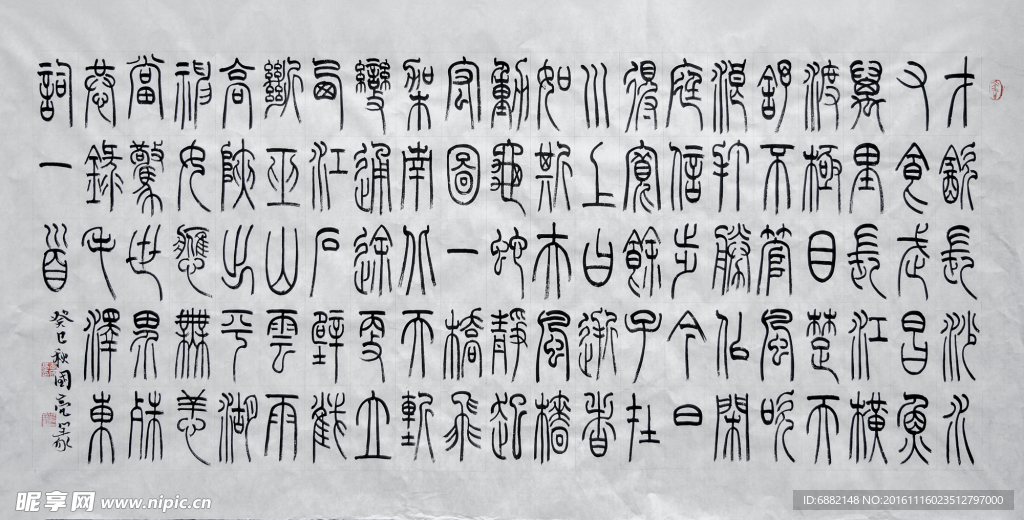 才飲長沙水
又食武昌魚
萬里長江橫
渡極目楚天
舒不管風吹
浪打勝似閑
庭信步今日
得寬餘子在
川上曰逝者
如斯夫風檣
動龜蛇靜起
宏圖一橋飛
架南北天塹
變通途更立
西江石壁截
斷巫山雲雨
高峽出平湖
神女應無恙
當驚世界殊
恭錄毛澤東
詞一首
癸巳秋國亮篆
昵享网 www.nipic.cn
ID:6882148 NO:20161116023512797000